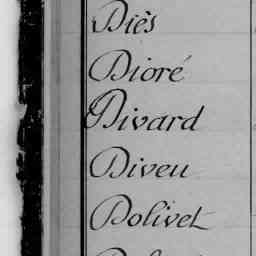 Diès
Dioré
Divard
Diveu
Dolivet